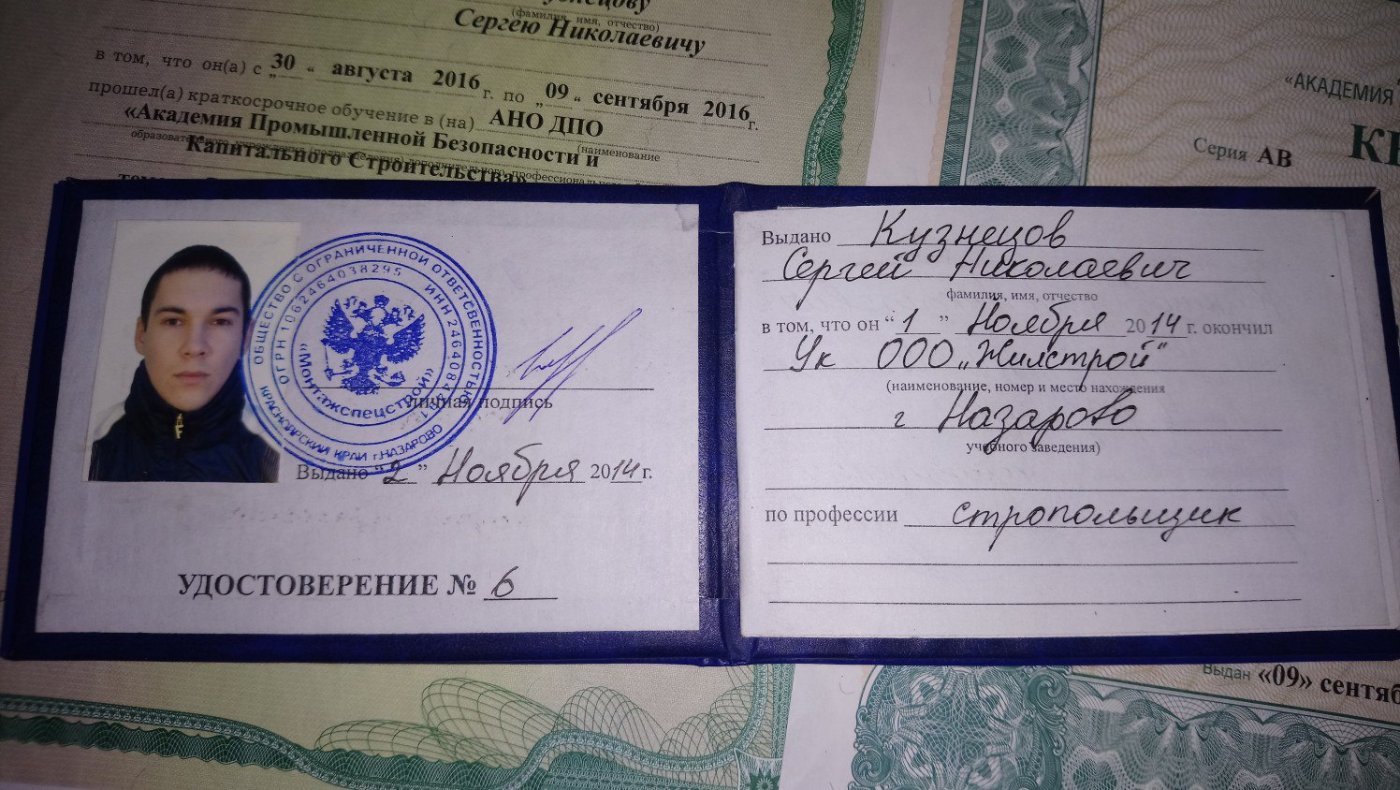 Сергею Николаевичу
(фамилия, имя, отчество)
в том, что он(а) с „30“ августа 2016 г. по „09“ сентября 2016 г.
прошел(а) краткосрочное обучение в (на) АНО ДПО
(наименование
«Академия Промышленной Безопасности и
Капитального Строительства»
«АКАДЕМИЯ
Серия АВ
ОБЩЕСТВО С ОГРАНИЧЕННОЙ ОТВЕТСВЕННОСТЬЮ
ОГРН 1062464038295 ИНН
КРАСНОЯРСКИЙ КРАЙ г.НАЗАРОВО
личная подпись
Выдано “2” Ноября 2014г.
УДОСТОВЕРЕНИЕ № 6
Выдано Кузнецов
Сергей Николаевич
фамилия, имя, отчество
в том, что он “1” Ноября 2014 г. окончил
Ук ООО „Жилстрой“
(наименование, номер и место нахождения
г Назарово
учебного заведения)
по профессии стропольщик
Выдан «09»